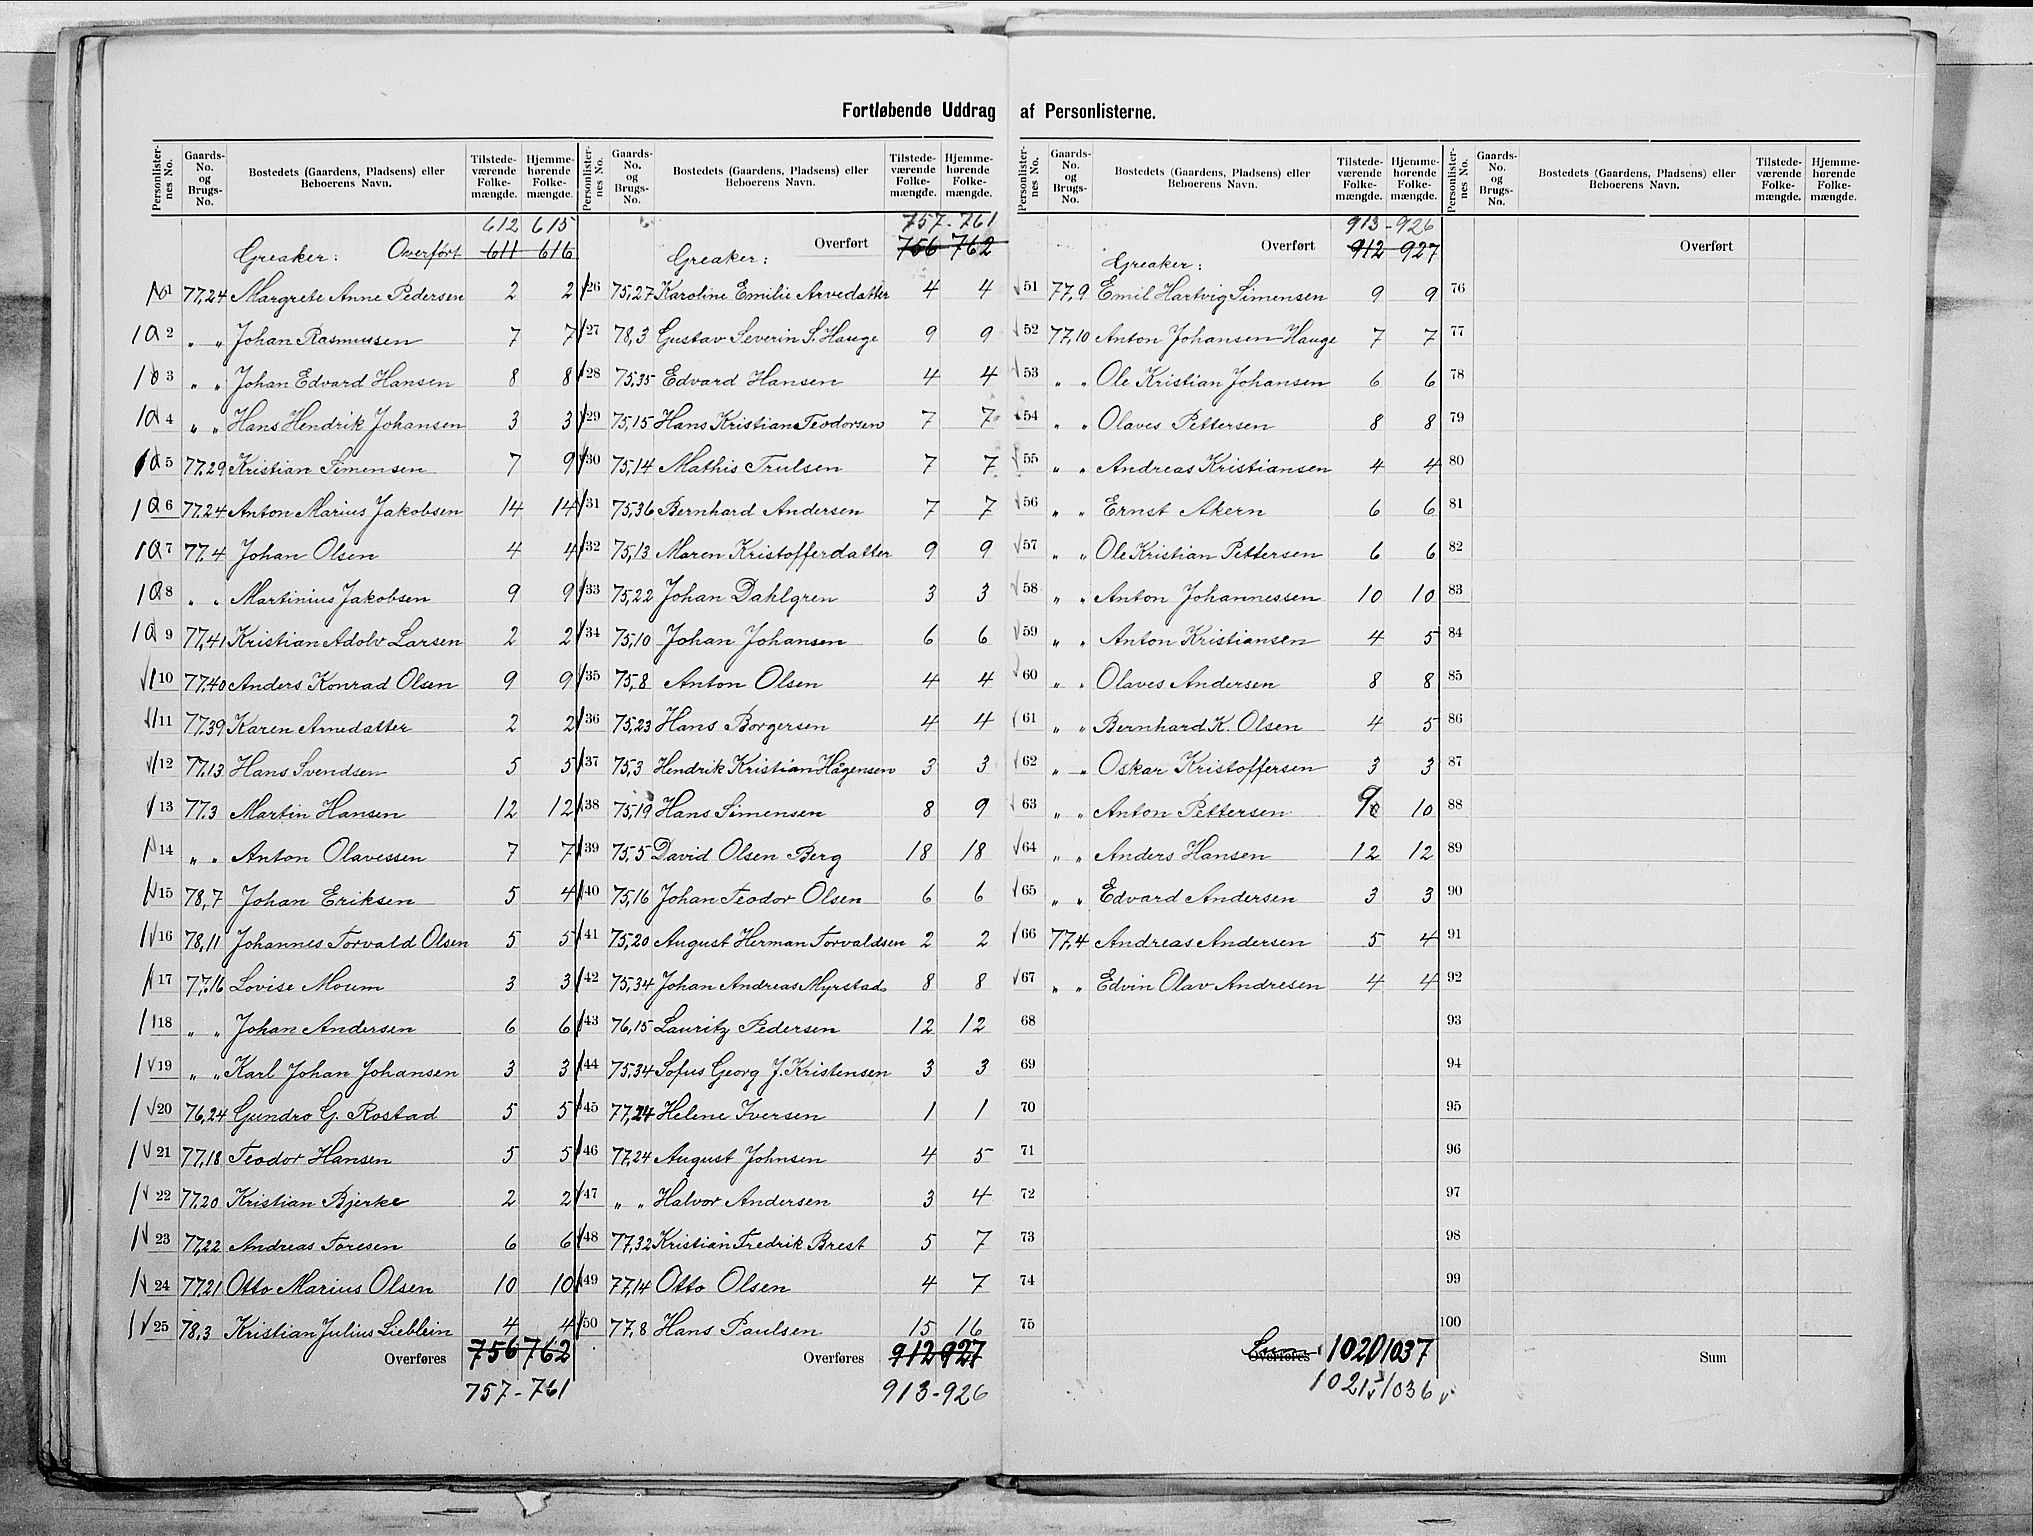 Fortløbende Uddrag af Personlisterne.
Personlister-nes No. Gaards-No. og Brugs-No. Bostedets (Gaardens, Pladsens) eller Beboerens Navn. Tilstede-værende Folke-mængde. Hjemme-hørende Folke-mængde.
612 615
Greaker: Overført 611 616
101 77,24 Margrete Anne Pedersen 2 2
102 „ „ Johan Rasmussen 7 7
103 „ „ Johan Edvard Hansen 8 8
104 „ „ Hans Hendrik Johansen 3 3
105 77,29 Kristian Simensen 7 9
106 77,24 Anton Marius Jakobsen 14 14
107 77,4 Johan Olsen 4 4
108 „ „ Martinius Jakobsen 9 9
109 77,41 Kristian Adolv Larsen 2 2
110 77,40 Anders Konrad Olsen 9 9
111 77,39 Karen Arnedatter 2 2
112 77,13 Hans Svendsen 5 5
113 77,3 Martin Hansen 12 12
114 „ „ Anton Olavessen 7 7
115 78,7 Johan Eriksen 5 4
116 78,11 Johannes Torvald Olsen 5 5
117 77,16 Lovise Moum 3 3
118 „ „ Johan Andersen 6 6
119 „ „ Karl Johan Johansen 3 3
120 76,24 Gundro G. Rostad 5 5
121 77,18 Teodor Hansen 5 5
122 77,20 Kristian Bjerke 2 2
123 77,22 Andreas Toresen 6 6
124 77,21 Otto Marius Olsen 10 10
125 78,3 Kristian Julius Lieblein 4 4
Overføres 756 762
757 - 761
Personlister-nes No. Gaards-No. og Brugs-No. Bostedets (Gaardens, Pladsens) eller Beboerens Navn. Tilstede-værende Folke-mængde. Hjemme-hørende Folke-mængde.
757 - 761
Greaker: Overført 756 762
126 75,27 Karoline Emilie Arvedatter 4 4
127 78,3 Gustav Severin S. Hauge 9 9
128 75,35 Edvard Hansen 4 4
129 75,15 Hans Kristian Teodorsen 7 7
130 75,14 Mathis Trulsen 7 7
131 75,36 Bernhard Andersen 7 7
132 75,13 Maren Kristofferdatter 9 9
133 75,22 Johan Dahlgren 3 3
134 75,10 Johan Johansen 6 6
135 75,8 Anton Olsen 4 4
136 75,23 Hans Borgersen 4 4
137 75,3 Hendrik Kristian Hågensen 3 3
138 75,19 Hans Simensen 8 9
139 75,5 David Olsen Berg 18 18
140 75,16 Johan Teodor Olsen 6 6
141 75,20 August Herman Torvaldsen 2 2
142 75,34 Johan Andreas Myrstad 8 8
143 76,15 Lauritz Pedersen 12 12
144 75,34 Sofus Georg J. Kristensen 3 3
145 77,24 Helene Iversen 1 1
146 77,24 August Johnsen 4 5
147 „ „ Halvor Andersen 3 4
148 77,32 Kristian Fredrik Brest 5 7
149 77,14 Otto Olsen 4 7
150 77,8 Hans Paulsen 15 16
Overføres 912 927
913 - 926
Personlister-nes No. Gaards-No. og Brugs-No. Bostedets (Gaardens, Pladsens) eller Beboerens Navn. Tilstede-værende Folke-mængde. Hjemme-hørende Folke-mængde.
913 - 926
Greaker: Overført 912 927
51 77,9 Emil Hartvig Simensen 9 9
52 77,10 Anton Johansen Hauge 7 7
53 „ „ Ole Kristian Johansen 6 6
54 „ „ Olaves Pettersen 8 8
55 „ „ Andreas Kristiansen 4 4
56 „ „ Ernst Akern 6 6
57 „ „ Ole Kristian Pettersen 6 6
58 „ „ Anton Johannessen 10 10
59 „ „ Anton Kristiansen 4 5
60 „ „ Olaves Andersen 8 8
61 „ „ Bernhard K. Olsen 4 5
62 „ „ Oskar Kristoffersen 3 3
63 „ „ Anton Pettersen 9 10
64 „ „ Anders Hansen 12 12
65 „ „ Edvard Andersen 3 3
66 77,4 Andreas Andersen 5 4
67 „ „ Edvin Olav Andresen 4 4
68
69
70
71
72
73
74
75
Overføres Sum 1020 1037
1021 1036
Personlister-nes No. Gaards-No. og Brugs-No. Bostedets (Gaardens, Pladsens) eller Beboerens Navn. Tilstede-værende Folke-mængde. Hjemme-hørende Folke-mængde.
Overført
76
77
78
79
80
81
82
83
84
85
86
87
88
89
90
91
92
93
94
95
96
97
98
99
100
Sum